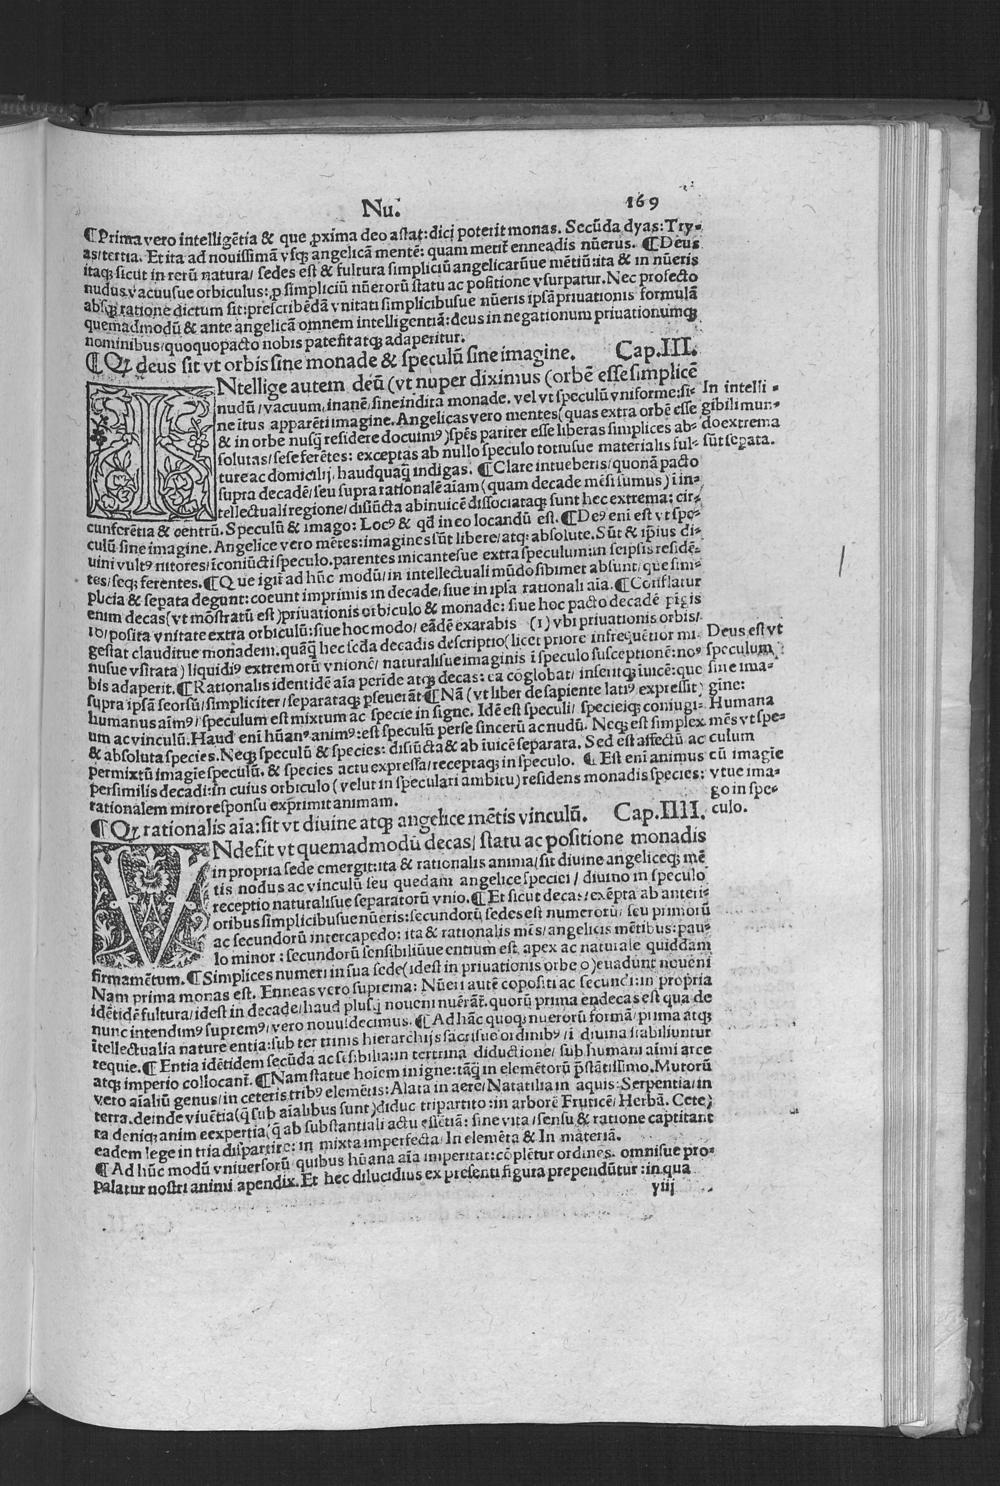 Nu. 169
¶Prima vero intelligẽtia & que ꝓxima deo astat: dici poterit monas. Secũda dyas: Try-
as/tertia. Et ita ad novissimã vsq̃ angelicã mentẽ: quam merit̃ enneadis nũerus. ¶Deus
itaq̃ sicut in rerũ natura/ sedes est & fultura simpliciũ angelicarũue mẽtiũ: ita & in nũeris
nudus vacuusue orbiculus: ꝓ simpliciũ nũerorũ statu ac positione vsurpatur. Nec profecto
absq̃ ratione dictum sit: prescribẽdã vnitati simplicibusue nũeris ipsã priuationis formulã
quemadmodũ & ante angelicã omnem intelligentiã: deus in negationum priuationumq̃
nominibus/ quoquopacto nobis patefit atq̃ adaperitur.
¶Qꝫ deus sit vt orbis sine monade & speculũ sine imagine. Cap.III.
INtellige autem deũ (vt nuper diximus (orbẽ esse simplicẽ
nudũ/ vacuum, inanẽ/ sine indita monade. vel vt speculũ vniforme: si-
ne itus apparẽti imagine. Angelicas vero mentes (quas extra orbẽ esse
& in orbe nusq̃ residere docuimꝰ) spẽs pariter esse liberas simplices ab-
solutas/ sese ferẽtes: exceptas ab nullo speculo totiusue materialis ful-
ture ac domicilij, haudquaq̃ indigas. ¶Clare intueberis/ quonã pacto
supra decadẽ/ seu supra rationalẽ aĩam (quam decade mẽsi sumus) ĩ in-
tellectuali regione/ disiũcta abinuicẽ dissociataq̃ sunt hec extrema: cir-
cunferẽtia & centrũ. Speculũ & imago: Locꝰ & qđ in eo locandũ est. ¶Deꝰ eni est vt spe-
culũ sine imagine. Angelice vero mẽtes: imagines sũt libere/ atq̃: absolute. Sũt & ip̃ius di-
uini vultꝰ nitores/ ĩconiũcti speculo. parentes micantesue extra speculum: in seipsis residẽ-
tes/ seq̃: ferentes. ¶Que igit̃ ad hũc modũ/ in intellectuali mũdo sibimet absunt/ que sim-
plicia & sepata degunt: coeunt imprimis in decade/ siue in ipsa rationali aĩa. ¶Conflatur
enim decas (vt mõstratũ est) priuationis orbiculo & monade: siue hoc pacto decadẽ pĩgis
10/ posita vnitate extra orbiculũ: siue hoc modo/ eãdẽ exarabis (1) vbi priuationis orbis/
gestat clauditue monadem. quãq̃ hec secda decadis descriptio (licet priore infrequẽtior mi-
nusue vsitata) liquidiꝰ extremorũ vnionẽ/ naturalisue imaginis ĩ speculo susceptionẽ: no-
bis adaperit. ¶Rationalis identidẽ aĩa perĩde atq̃ decas: ea coglobat/ inseritq̃ ĩuicẽ: que
supra ipsã seorsũ/ simpliciter/ separataq̃ pseuerãt ¶Nã (vt liber de sapiente latiꝰ expressit)
humanus aĩmꝰ/ speculum est mixtum ac specie insigne. Idẽ est speculi/ specieiq̃ coniugi-
um ac vinculũ. Haud eni hũanꝰ animꝰ: est speculũ perse sincerũ ac nudũ. Neq̃ est simplex
& absoluta species. Neq̃ speculũ & species: disiũcta & ab ĩuicẽ separata. Sed est affectũ ac
permixtũ imagĩe speculũ. & species actu expressa/ receptaq̃ in speculo. ¶Est eni animus
persimilis decadi: in cuius orbiculo (velut in speculari ambitu) residens monadis species:
rationalem miro responsu exprimit animam.
In intelli-
gibili mun-
do extrema
sũt sepata.
Deus est vt
speculum
sine ima-
gĩne:
Humana
mẽs vt spe-
culum
cũ imagĩe
vtue ima-
go in spe-
culo.
¶Qꝫ rationalis aĩa: sit vt diuine atq̃ angelice mẽtis vinculũ. Cap.IIII.
VNdefit vt quemadmodũ decas/ statu ac positione monadis
in propria sede emergit: ita & rationalis anima/ sit diuine angeliceq̃ mẽ
tis nodus ac vinculũ seu quedam angelice speciei / diuino in speculo
receptio naturalisue separatorũ vnio. ¶Et sicut decas/ exẽpta ab anteri-
oribus simplicibusue nũeris: secundorũ sedes est numerorũ/ seu primorũ
ac secundorũ intercapedo: ita & rationalis mẽs/ angelicis mẽtibus: pau-
lo minor: secundorũ sensibiliũue entium est apex ac naturale quiddam
firmamẽtum. ¶Simplices numeri in sua sede (idest in priuationis orbe 0) euadunt noueni
Nam prima monas est. Enneas vero suprema: Nũeri autẽ copositi ac secundi: in propria
idẽtidẽ fultura/ idest in decade/ haud plusq̃ noueni nuẽrãt. quorũ prima endecas est qua de
nunc intendimꝰ supremꝰ/ vero nouudecimus. ¶Ad hãc quoq̃ nuerorũ formã/ prima atq̃
ĩtellectualia nature entia: sub ter trinis hierarchijs sacrisue ordinibꝰ/ ĩ diuina stabiliuntur
requie. ¶Entia idẽtidem secũda ac sẽsibilia: in ter trina diductione/ sub humani aĩmi arce
atq̃ imperio collocant̃. ¶Nam statue hoiem insigne: tãq̃ in elemẽtorũ p̃stãtissimo. Mutorũ
vero aĩaliũ genus/ in ceteris tribꝰ elemẽtis: Alata in aere/ Natatilia in aquis: Serpentia/ in
terra. deinde viuẽtia (q̃ sub aĩalibus sunt) diduc tripartito: in arborẽ Fruticẽ/ Herbã. Cete-
ra deniq̃ anime expertia/ (q̃ ab substantiali actu essẽtia: sine vita/ sensu & ratione captitant
eadem lege in tria dispartire: in mixta imperfecta/ In elemẽta & In materiã.
¶Ad hũc modũ vniuersorũ quibus hũana aĩa imperitat: coplẽtur ordines. omnisue pro-
palatur nostri animi apendix. Et hec dilucidius ex presenti figura prependũtur: in qua
yiij